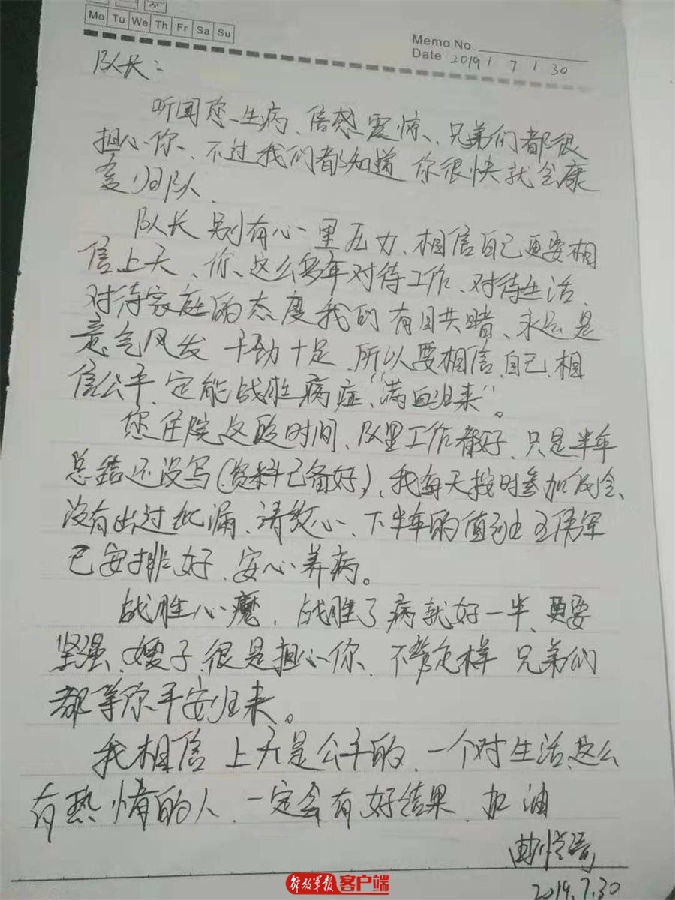 Mo Tu We Th Fr Sa Su
Memo No.
Date 2019 / 7 / 30
队长：
听闻您生病、倍感震惊、兄弟们都很
担心你、不过我们都知道你很快就会康
复归队.
队长别有心里压力、相信自己更要相
信上天、你这么多年对待工作、对待生活、
对待家庭的态度我们有目共睹、永远是
意气风发 干劲十足、所以要相信自己、相
信公平、定能战胜病症"满血归来"。
您住院这段时间、队里工作都好、只是半年
总结还没写(资料已备好)、我每天按时参加
没有出过纰漏、请放心、下半年的值
已安排好、安心养病。
战胜心魔，战胜了病就好一半、更要
坚强、嫂子很是担心你、不管怎样 兄弟们
都等你平安归来。
我相信上天是公平的、一个对生活这么
有热情的人、一定会有好结果、加油
2019.7.30
解放军报 客户端